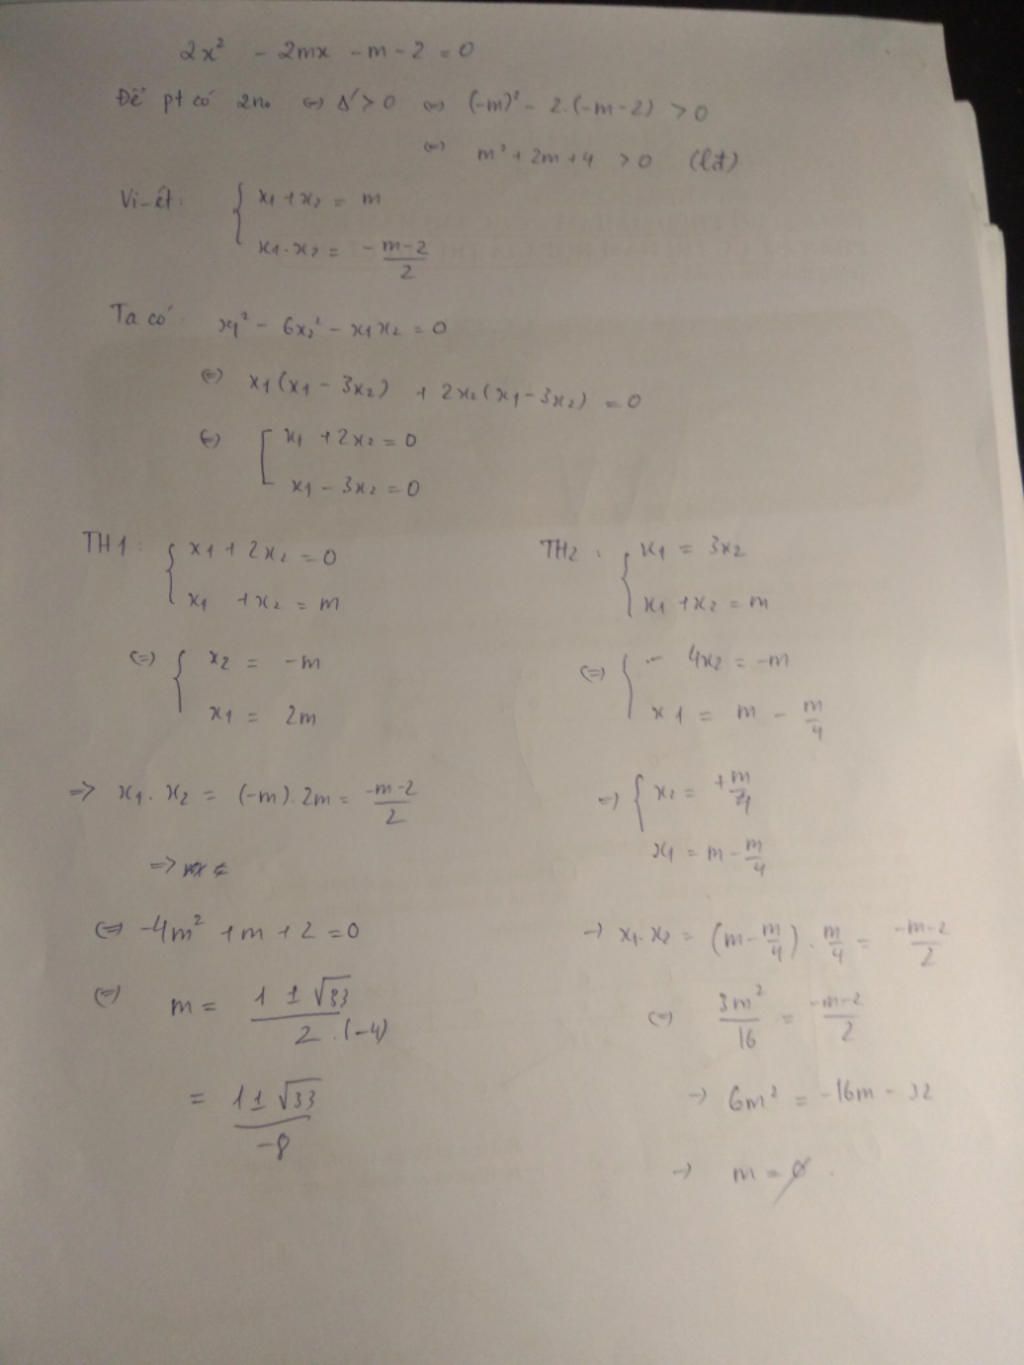 2x² - 2mx - m - 2 = 0
Để pt có 2n₀ ⇔ Δ' > 0 ⇔ (-m)² - 2.(-m-2) > 0
⇔ m² + 2m + 4 > 0 (lđ)
Vi-ét: { x₁ + x₂ = m
x₁.x₂ = -m-2/2
Ta có: x₁² - 6x₂² - x₁x₂ = 0
⇔ x₁(x₁ - 3x₂) + 2x₂(x₁ - 3x₂) = 0
⇔ [ x₁ + 2x₂ = 0
x₁ - 3x₂ = 0
TH1: { x₁ + 2x₂ = 0
x₁ + x₂ = m
⇔ { x₂ = -m
x₁ = 2m
⇒ x₁.x₂ = (-m).2m = -m-2/2
⇔ -4m² + m + 2 = 0
⇔ m = 1 ± √33 / 2.(-4)
= 1 ± √33 / -8
TH2: { x₁ = 3x₂
x₁ + x₂ = m
⇔ { - 4x₂ = -m
x1 = m - m/4
⇒ { x₂ = + m/4
x₁ = m - m/4
→ x₁.x₂ = (m - m/4) . m/4 = -m-2/2
⇔ 3m²/16 = -m-2/2
→ 6m² = -16m - 32
→ m = ∅.